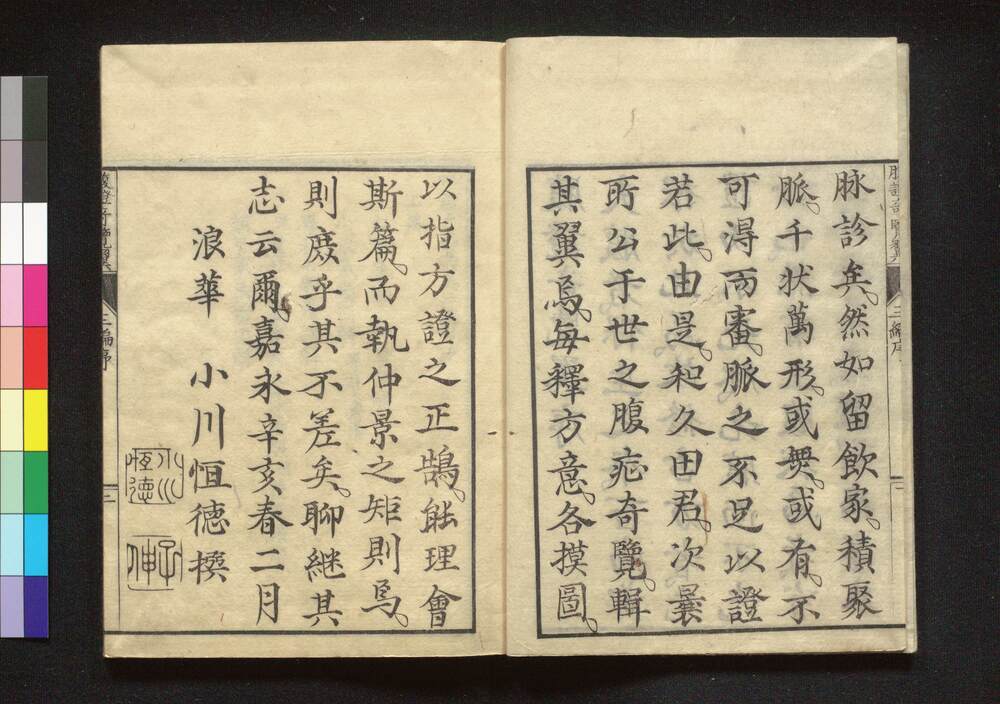 脉診矣。然如留飲家。積聚
脈。千状萬形。或無。或有。不
可得而審。脈之不足以證
若此。由是。和久田君。次曩
所公于世之腹症奇覽。輯
其翼焉。每釋方意。各摸圖。
三編序
以指方證之正鵠。能理會
斯篇。而執仲景之矩則焉。
則庶乎其不差矣。聊継其
志云爾。嘉永辛亥春二月
浪華 小川恒徳撰
三編序
二
小川
恒德